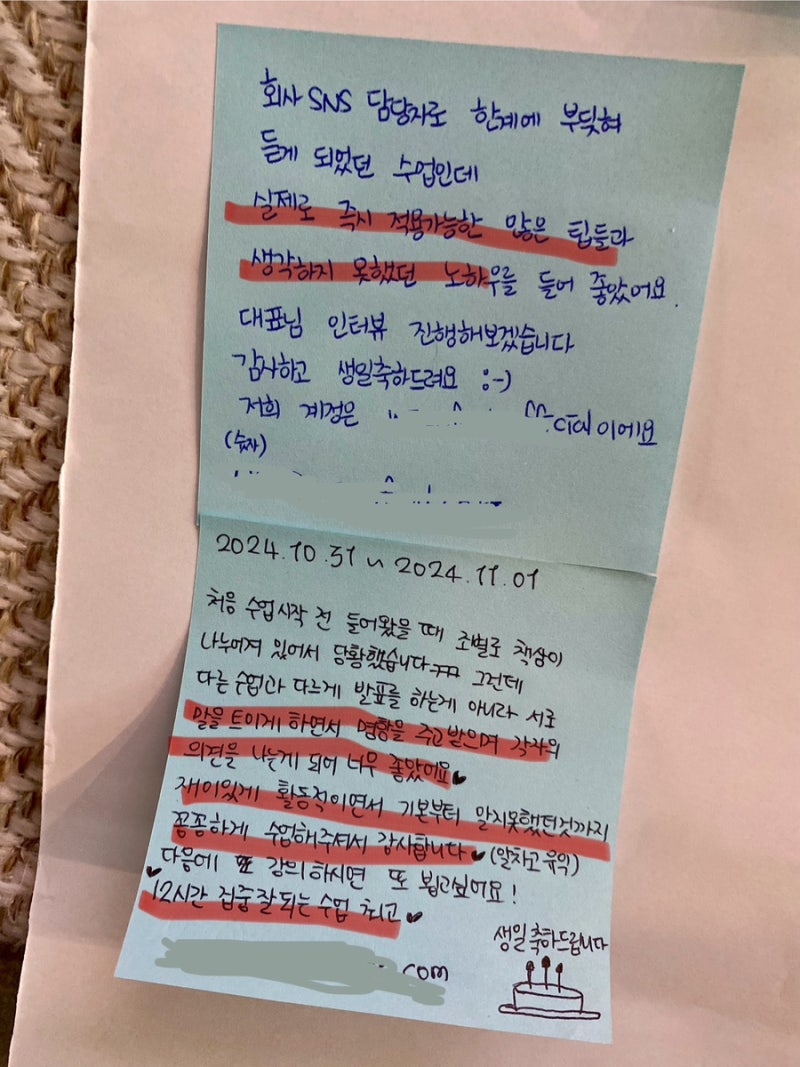 회사 SNS 담당자로 한계에 부딪혀
듣게 되었던 수업인데
실제로 즉시 적용가능한 많은 팁들과
생각하지 못했던 노하우를 들어 좋았어요.
대표님 인터뷰 진행해보겠습니다
감사하고 생일축하드려요 :-)
저희 계정은 이에요
(숫자)
2024.10.31 ~ 2024.11.01
처음 수업시작 전 들어왔을 때 조별로 책상이
나누어져 있어서 당황했습니다ㅋㅋ 그런데
다른 수업과 다르게 발표를 하는게 아니라 서로
말을 트이게 하면서 명함을 주고받으며 각자의
의견을 나눌게 되어 너무 좋았어요♥
재미있게 활동적이면서 기본부터 알지못했던것까지
꼼꼼하게 수업해주셔서 감사합니다♥(알차고 유익)
다음에 또 강의하시면 또 뵙고싶어요!
♥12시간 집중잘되는 수업 최고♥
생일축하드립니다
.com